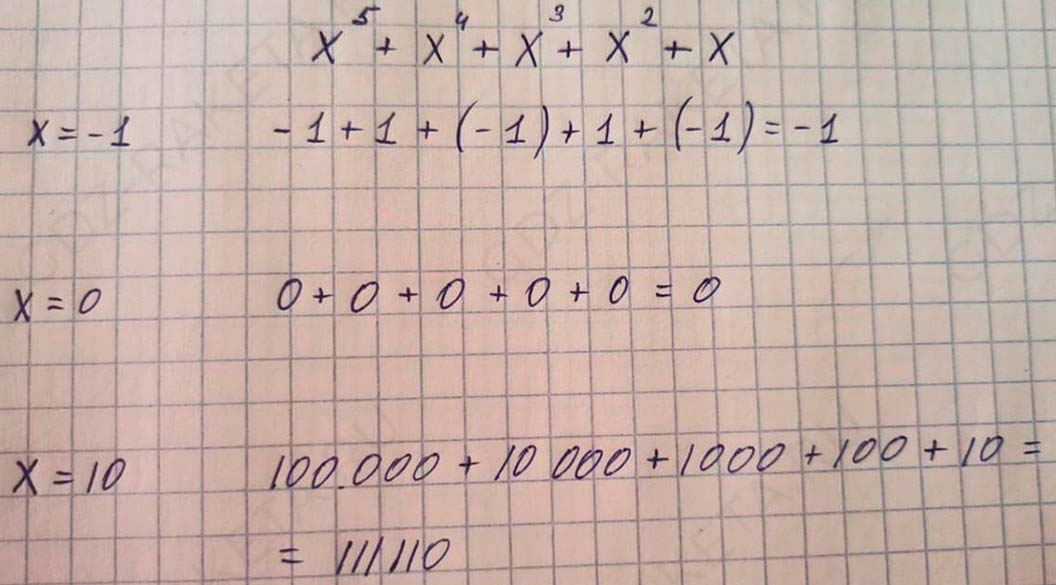 x⁵ + x⁴ + x³ + x² + x
x = -1 -1 + 1 + (-1) + 1 + (-1) = -1
x = 0 0 + 0 + 0 + 0 + 0 = 0
x = 10 100.000 + 10 000 + 1000 + 100 + 10 =
= 111110